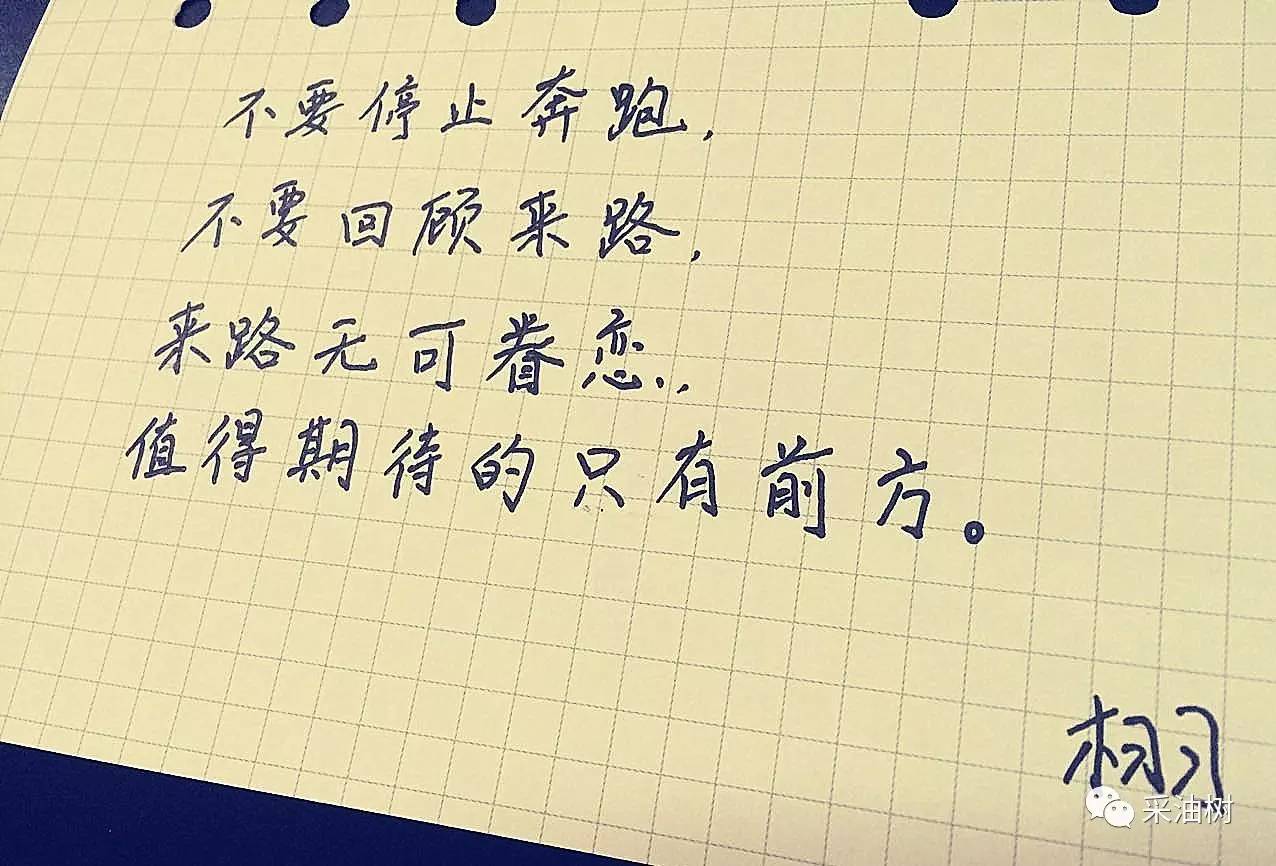 不要停止奔跑,
不要回顾来路,
来路无可眷恋,
值得期待的只有前方。
栩
采油树